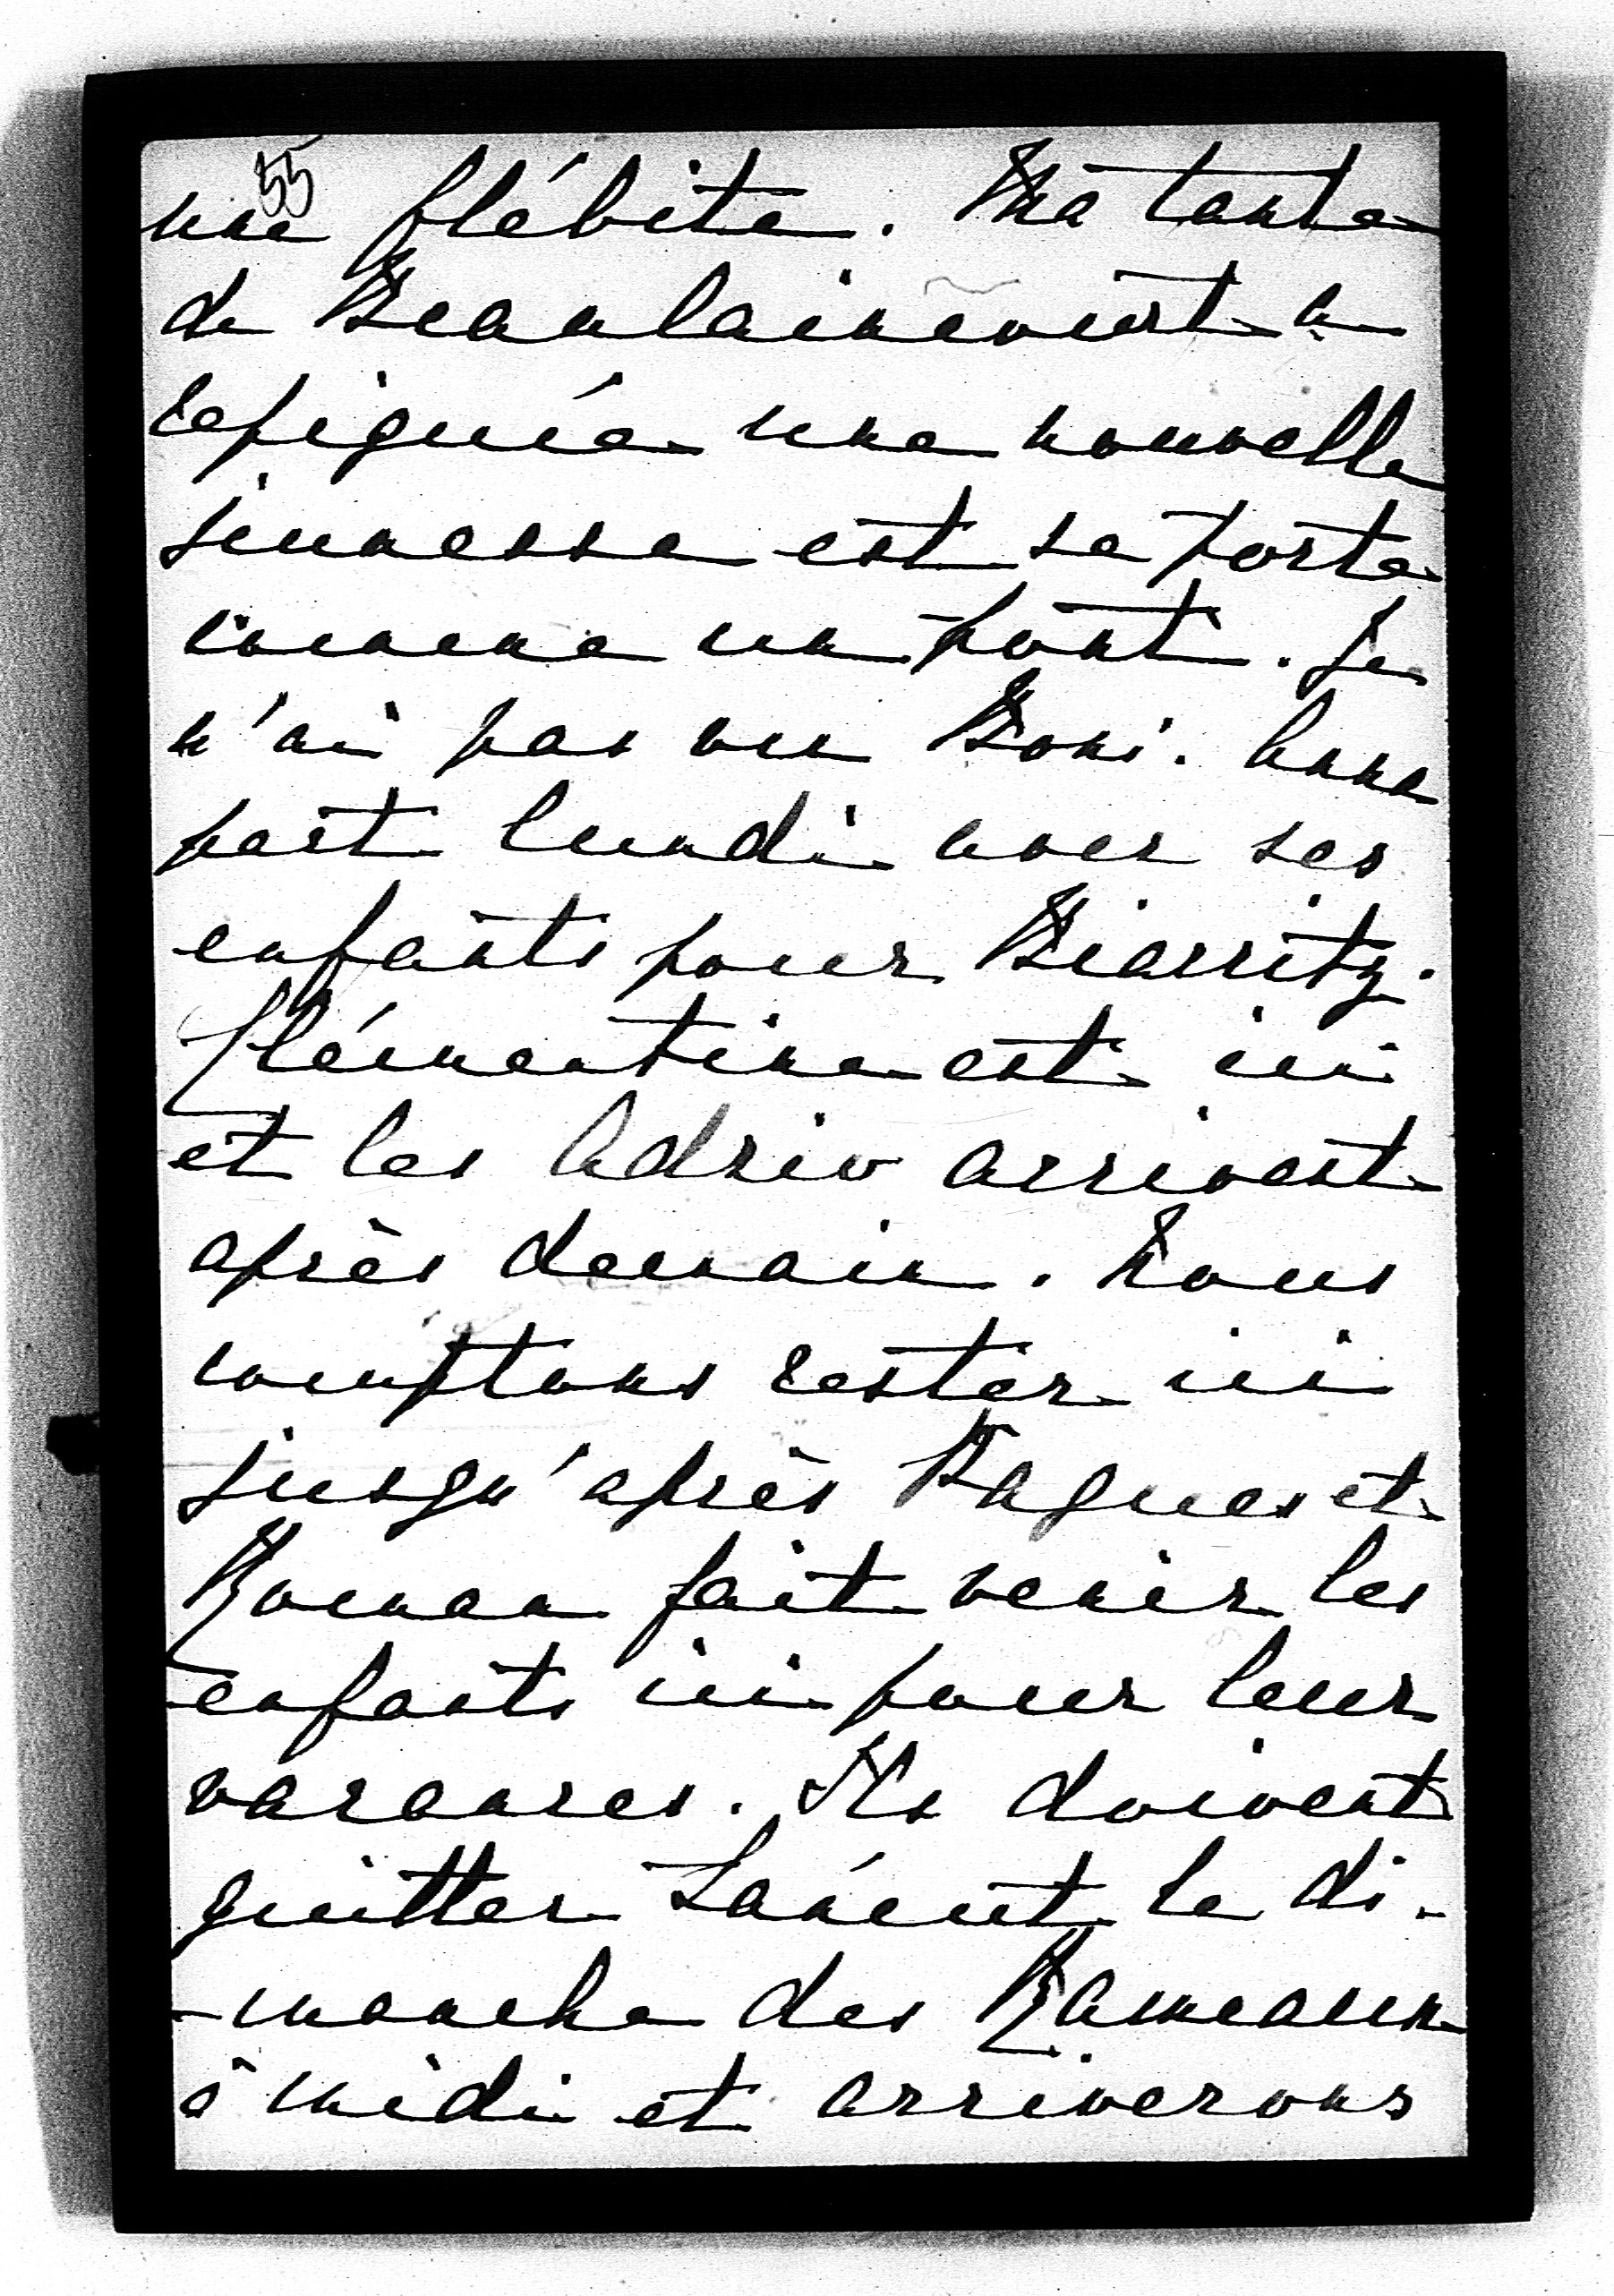 55
une flébite. Ma tante
de Beaulaincourt a
repiquée une nouvelle
jeunesse est se porte
comme un pont. Je
n'ai pas vu Boni. Anna
part lundi avec ses
enfants pour Biarritz.
Clémentine est ici
et les Adrio arrivent
après demain. Nous
comptons rester ici
jusqu'après Paques et
Roman fait venir les
enfants ici pour leur
vacances. Ils doivent
quitter le di-
-manche des Rameaux
à midi et arriverons